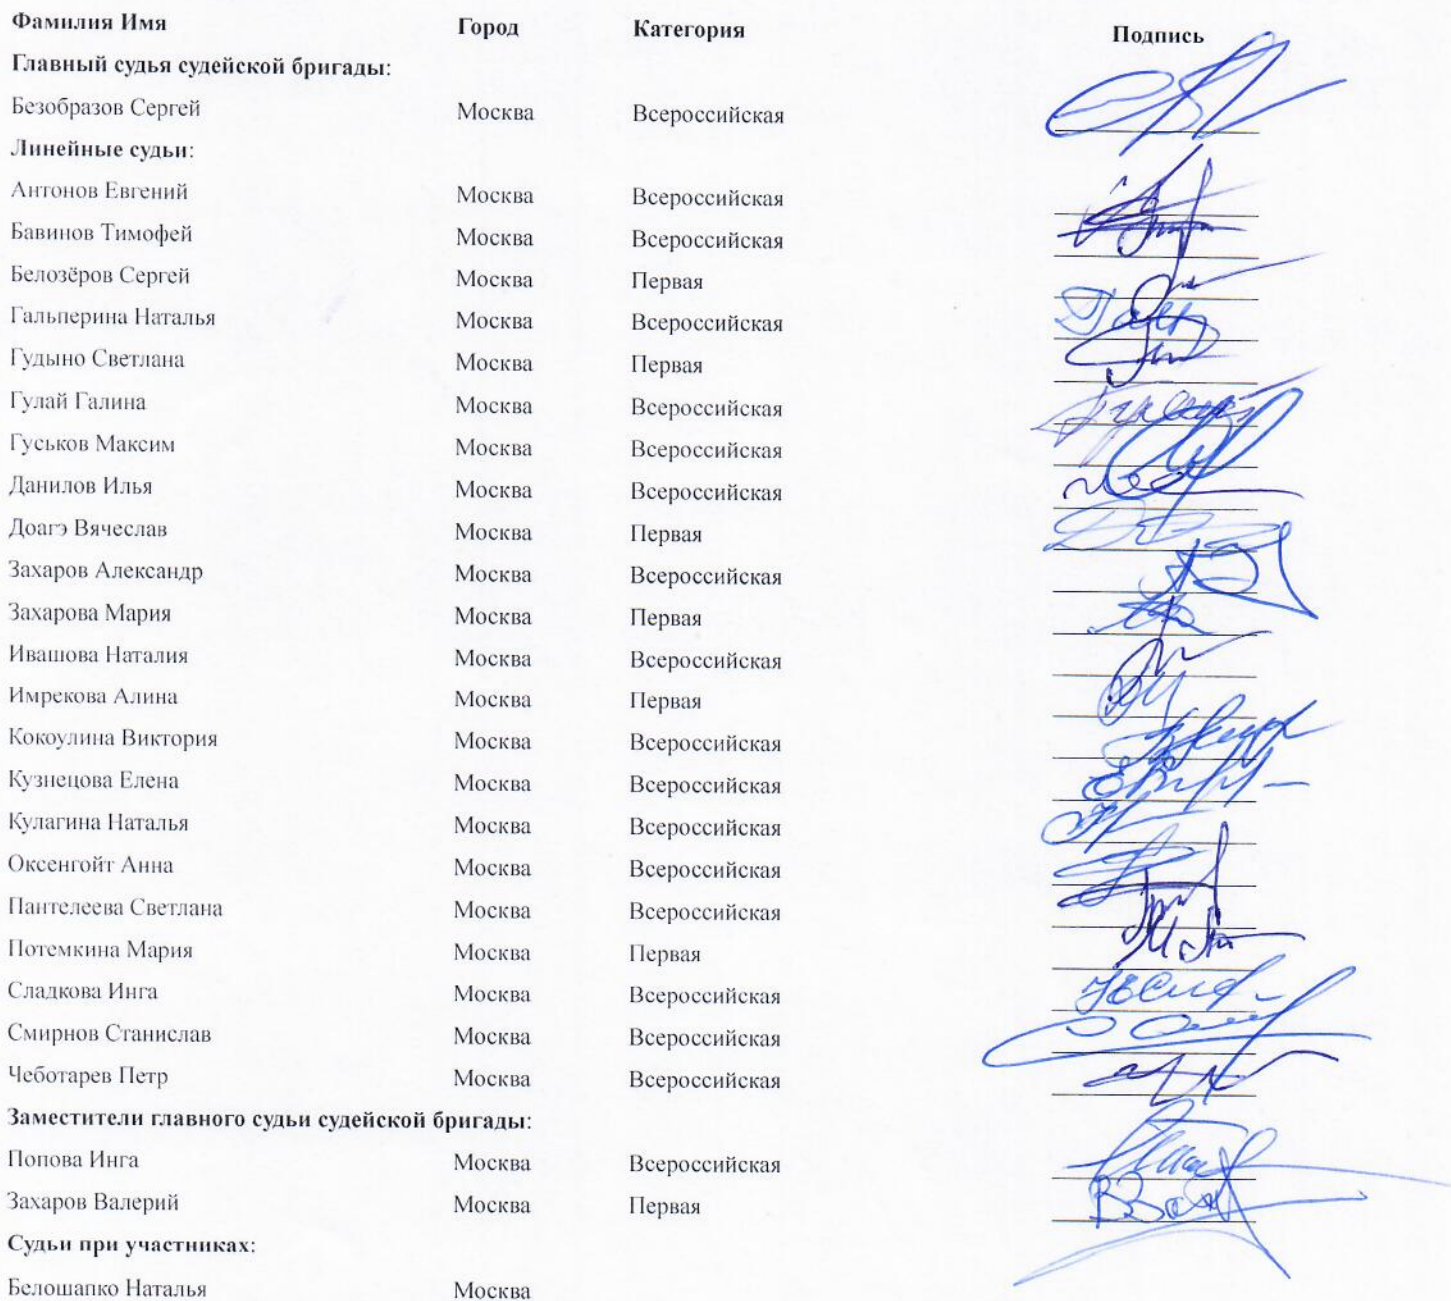 Фамилия Имя Город Категория Подпись
Главный судья судейской бригады:
Безобразов Сергей Москва Всероссийская
Линейные судьи:
Антонов Евгений Москва Всероссийская
Бавинов Тимофей Москва Всероссийская
Белозёров Сергей Москва Первая
Гальперина Наталья Москва Всероссийская
Гудыно Светлана Москва Первая
Гулай Галина Москва Всероссийская
Гуськов Максим Москва Всероссийская
Данилов Илья Москва Всероссийская
Доагэ Вячеслав Москва Первая
Захаров Александр Москва Всероссийская
Захарова Мария Москва Первая
Ивашова Наталия Москва Всероссийская
Имрекова Алина Москва Первая
Кокоулина Виктория Москва Всероссийская
Кузнецова Елена Москва Всероссийская
Кулагина Наталья Москва Всероссийская
Оксенгойт Анна Москва Всероссийская
Пантелеева Светлана Москва Всероссийская
Потемкина Мария Москва Первая
Сладкова Инга Москва Всероссийская
Смирнов Станислав Москва Всероссийская
Чеботарев Петр Москва Всероссийская
Заместители главного судьи судейской бригады:
Попова Инга Москва Всероссийская
Захаров Валерий Москва Первая
Судьи при участниках:
Белошапко Наталья Москва